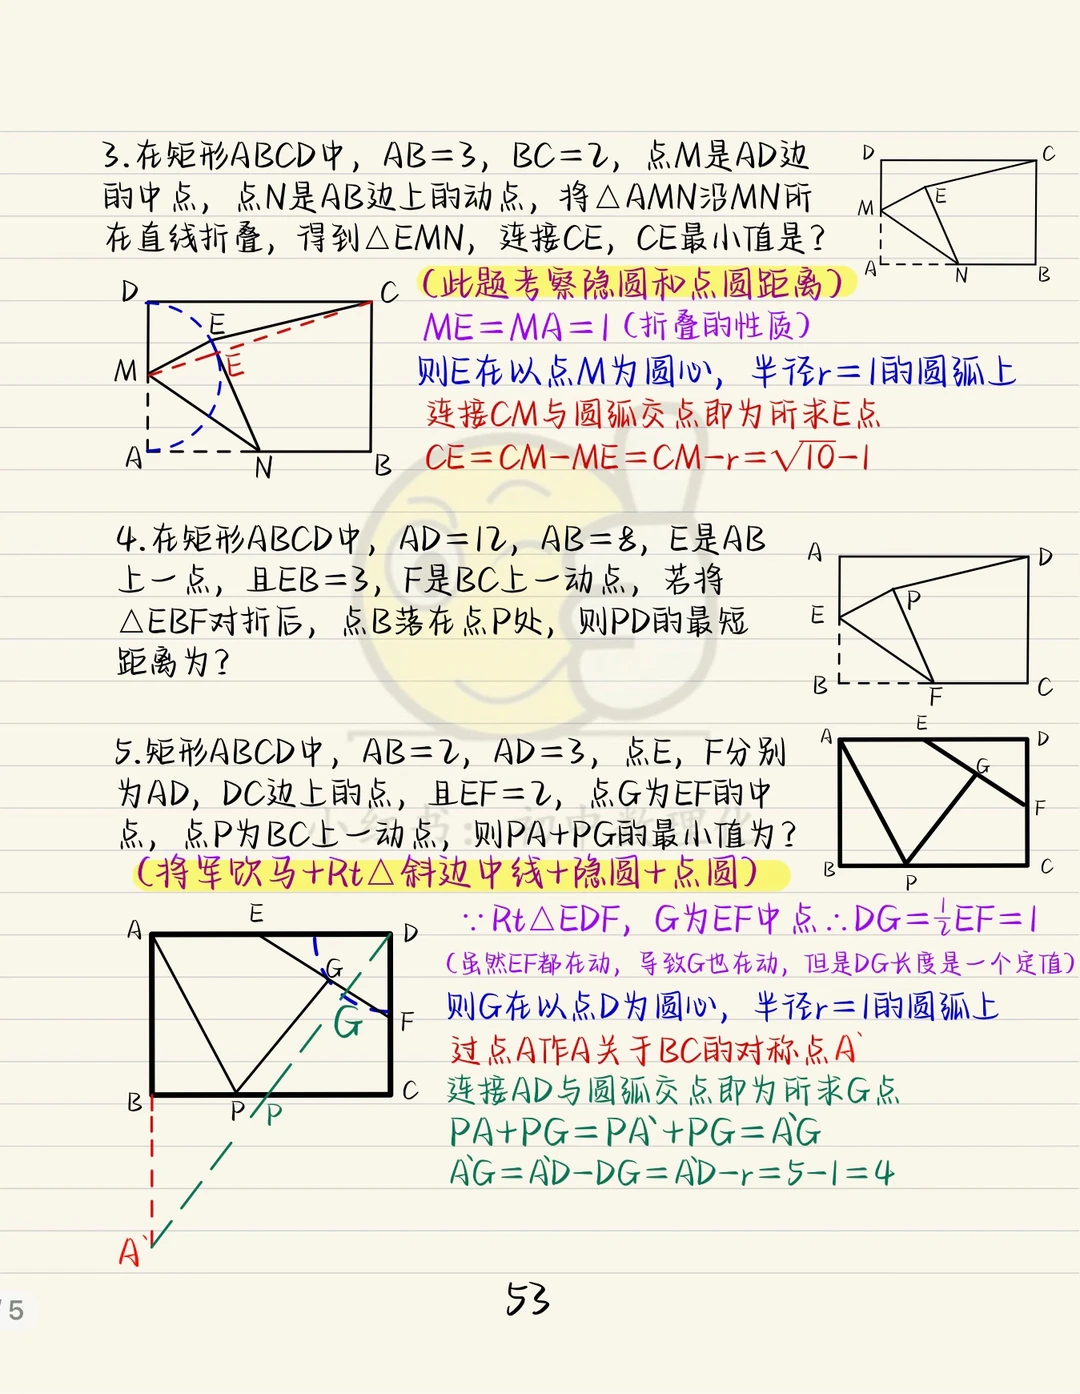 3.在矩形ABCD中，AB=3，BC=2，点M是AD边
的中点，点N是AB边上的动点，将△AMN沿MN所
在直线折叠，得到△EMN，连接CE，CE最小值是？
D C
E
M
A N B
(此题考察隐圆和点圆距离)
ME=MA=1(折叠的性质)
则E在以点M为圆心，半径r=1的圆弧上
连接CM与圆弧交点即为所求E点
CE=CM-ME=CM-r=√10-1
D C
E
E
M
A N B
4.在矩形ABCD中，AD=12，AB=8，E是AB
上一点，且EB=3，F是BC上一动点，若将
△EBF对折后，点B落在点P处，则PD的最短
距离为？
A D
E P
B F C
5.矩形ABCD中，AB=2，AD=3，点E，F分别
为AD，DC边上的点，且EF=2，点G为EF的中
点，点P为BC上一动点，则PA+PG的最小值为？
小红书：初中数理化
A E D
G
F
B P C
(将军饮马+Rt△斜边中线+隐圆+点圆)
∵Rt△EDF，G为EF中点∴DG=½EF=1
(虽然EF都在动，导致G也在动，但是DG长度是一个定值)
则G在以点D为圆心，半径r=1的圆弧上
过点A作A关于BC的对称点A`
连接AD与圆弧交点即为所求G点
PA+PG=PA`+PG=A`G
A`G=A`D-DG=A`D-r=5-1=4
A E D
G
G F
B P P C
A`
53
/5